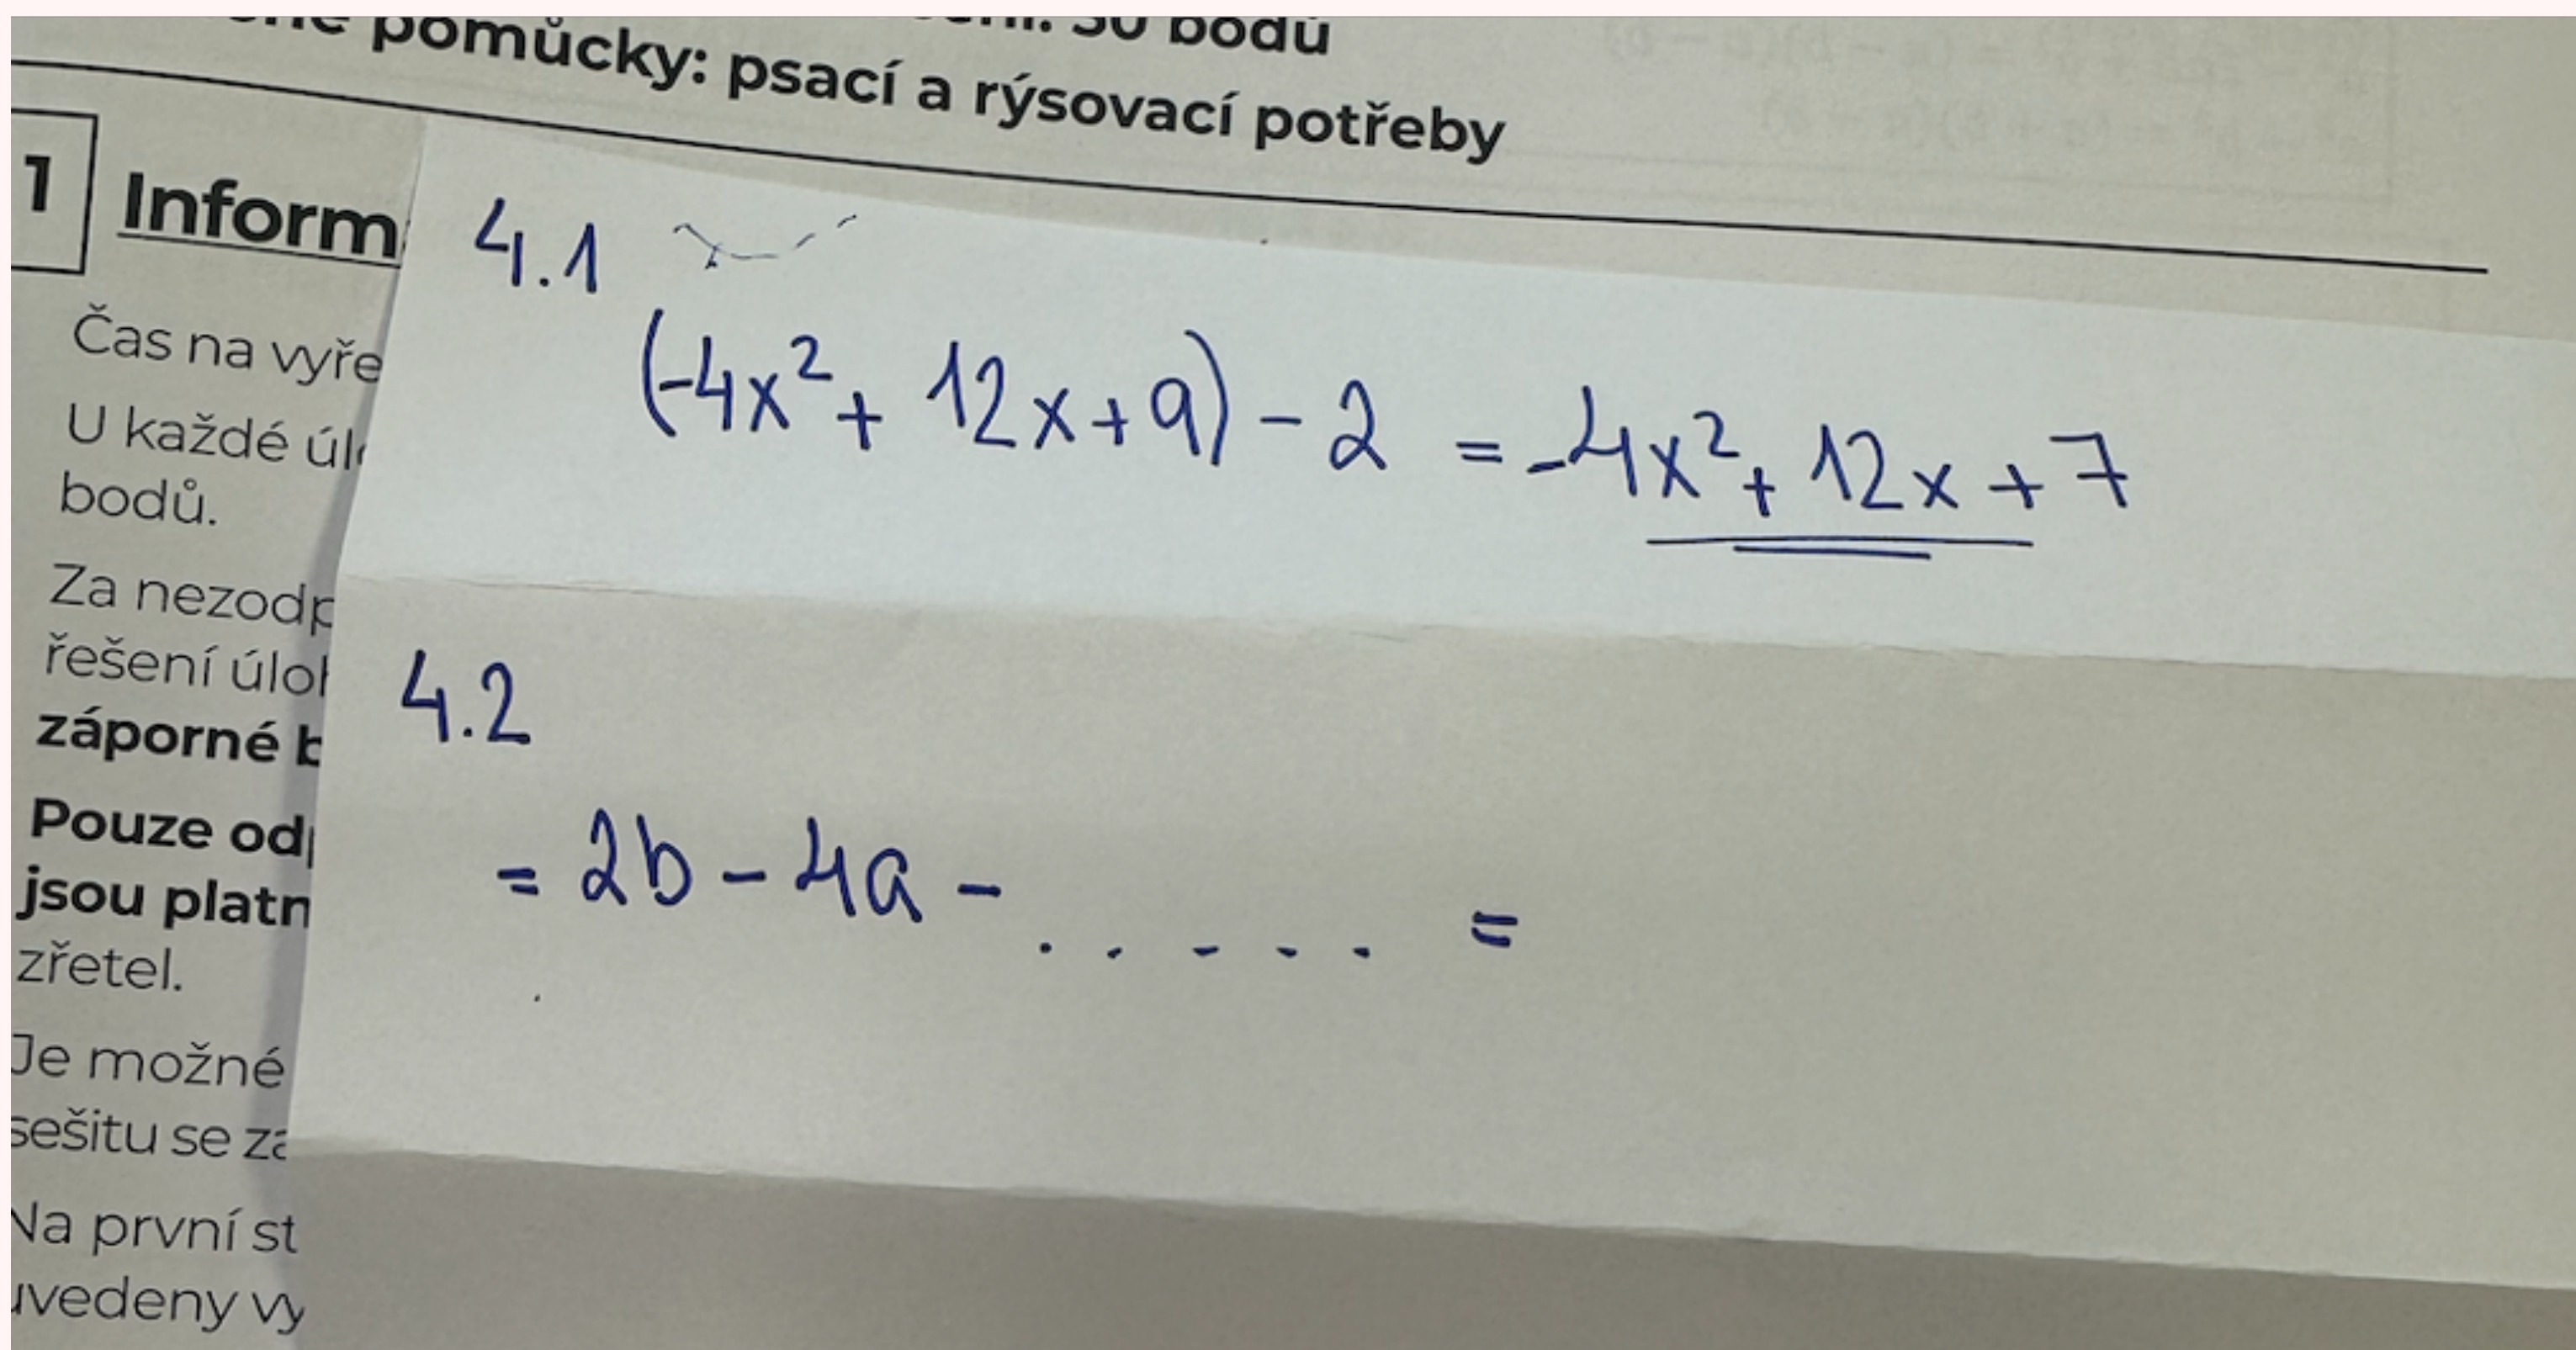 pomůcky: psací a rýsovací potřeby
50 bodů
1 Inform
Čas na vyře
U každé úl
bodů.
Za nezodp
řešení úloh
záporné b
Pouze odp
jsou platn
zřetel.
Je možné
sešitu se za
Na první st
uvedeny vy
4.1
(-4x²+ 12x+9) - 2 = -4x²+ 12x + 7
4.2
= 2b - 4a - . . - - - =